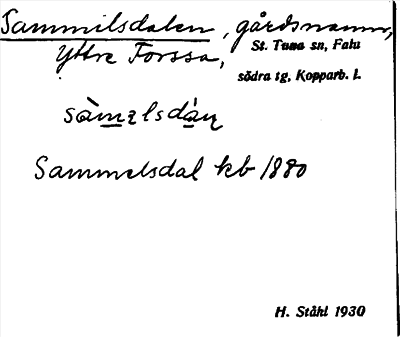 Sammilsdalen, gårdsnamn,
Yttre Forssa,
St. Tuna sn, Falu
södra tg, Kopparb. l.
Sammelsdal kb 1880
H. Ståhl 1930